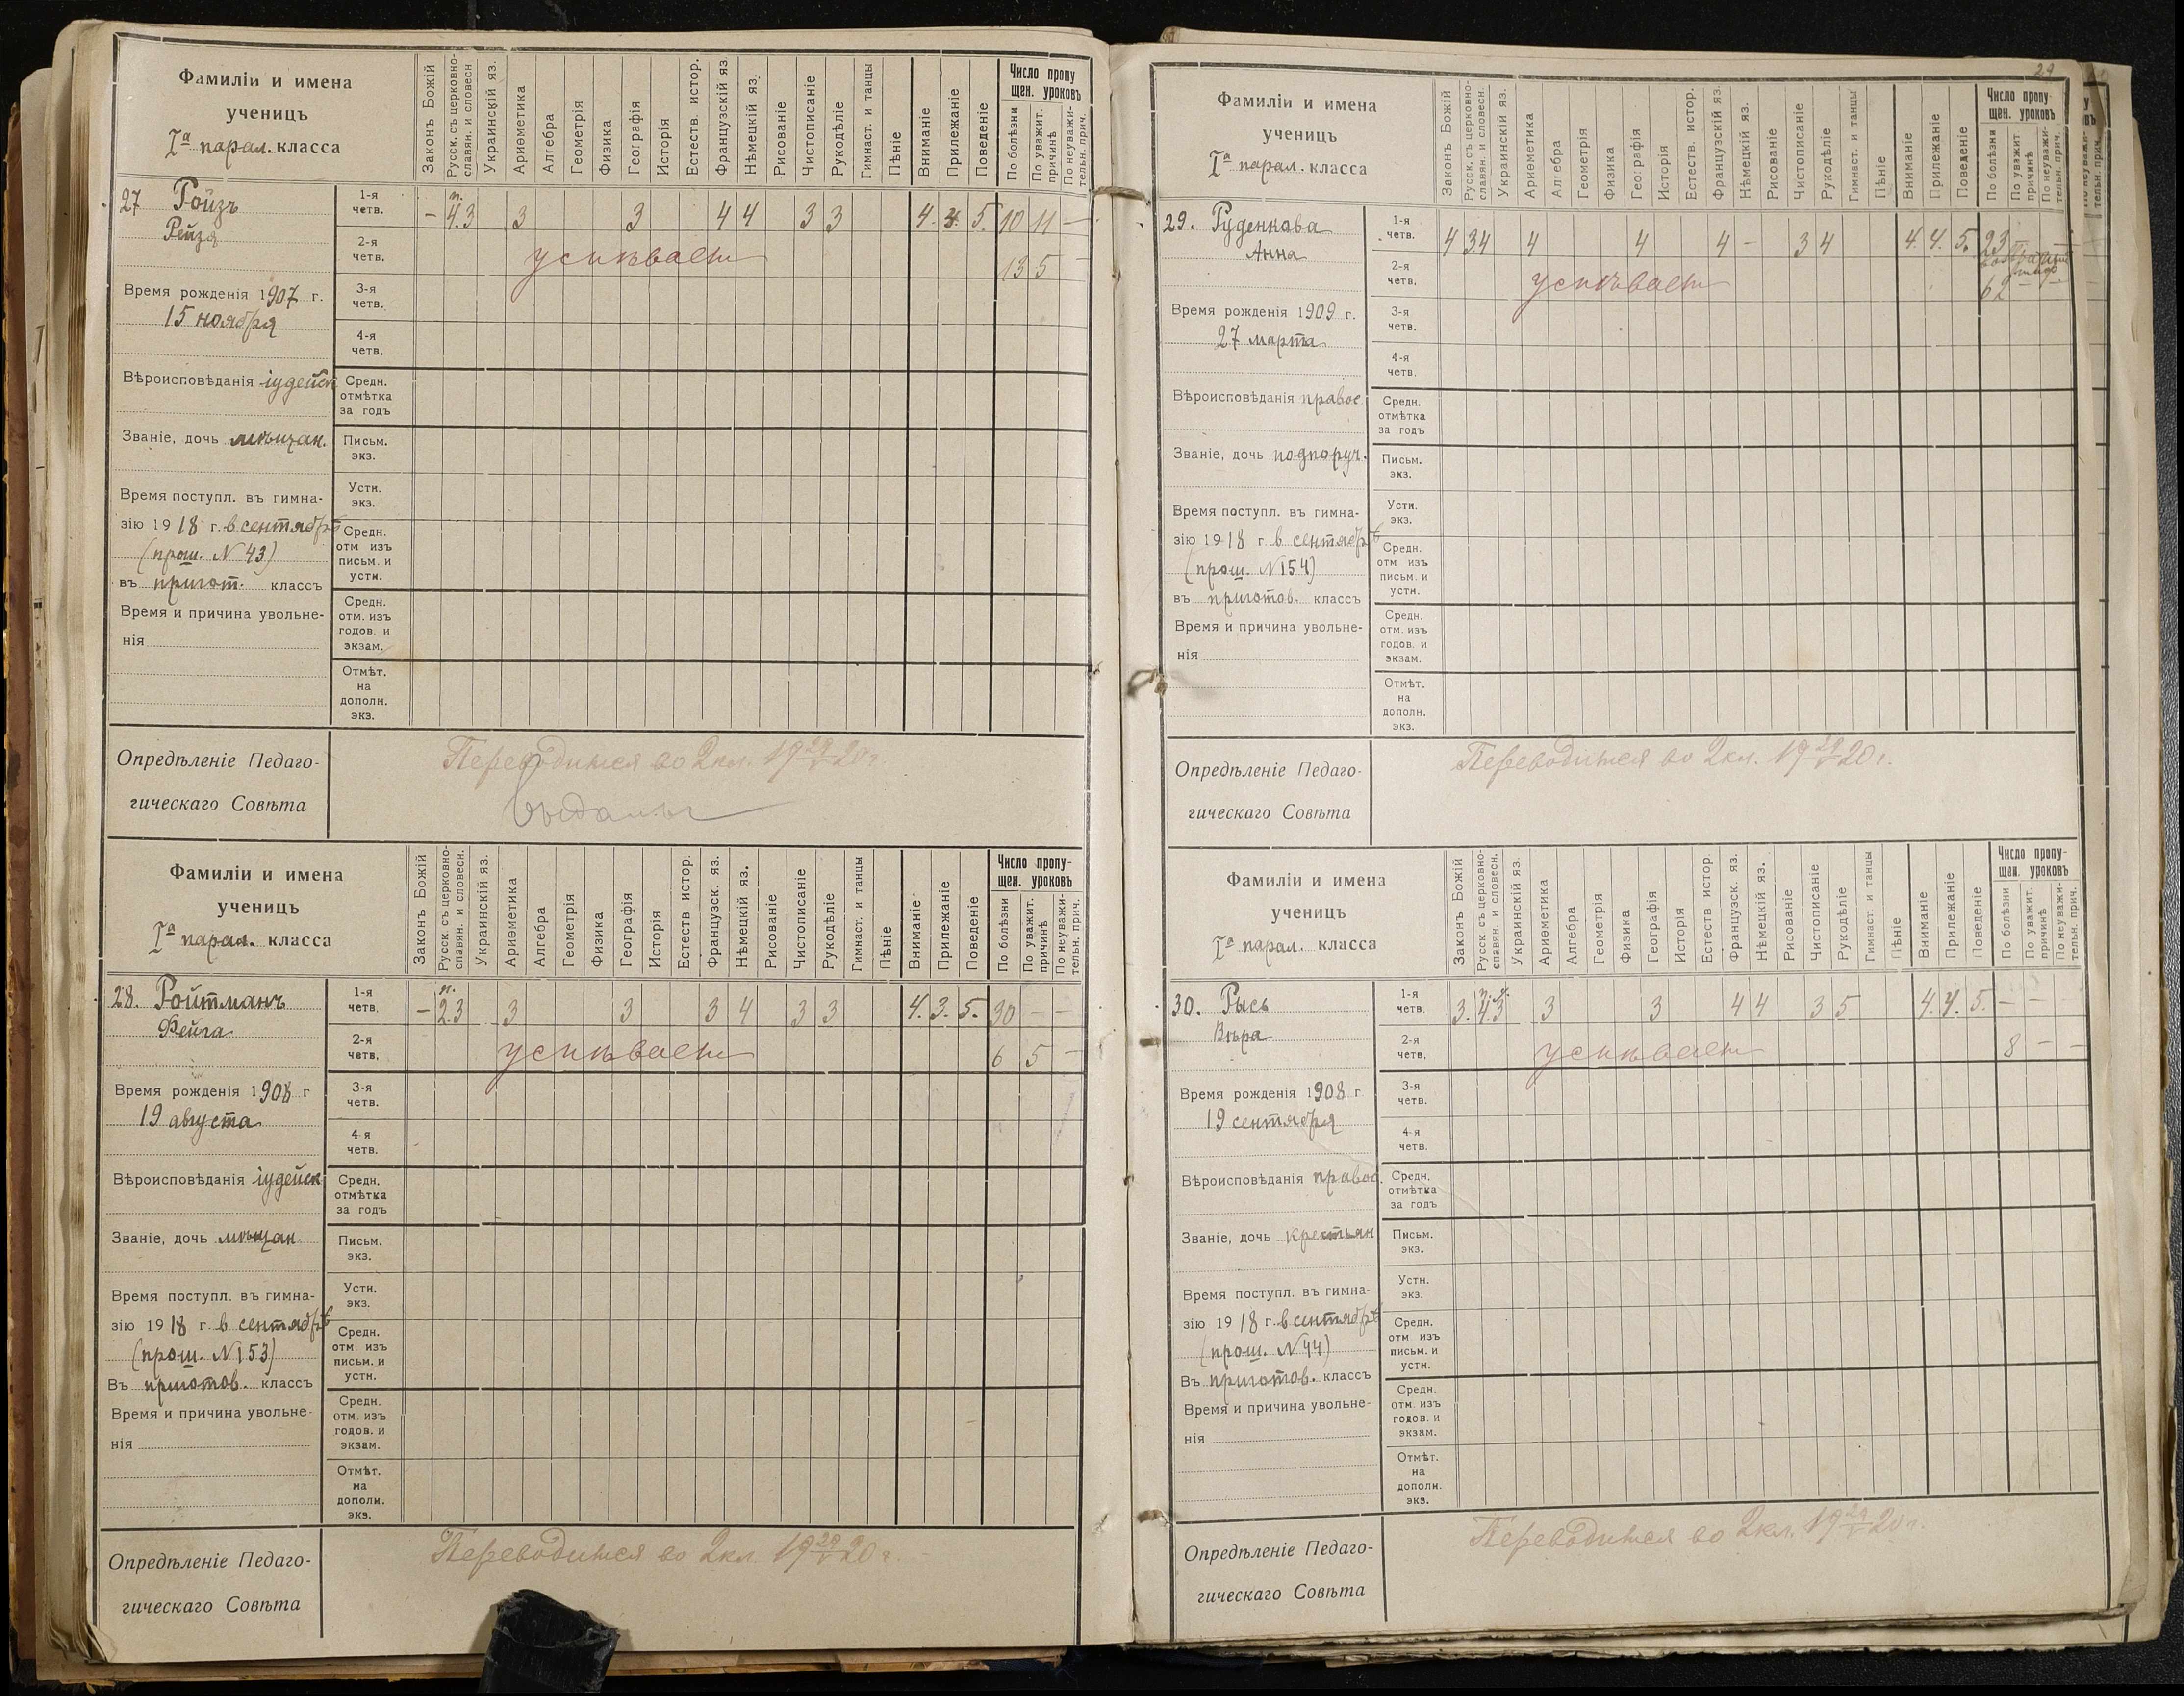 Фамиліи и имена
ученицъ
Iа парал. класса
Законъ Божій
Русск. съ церковно-
славян. и словесн
Украинскій яз.
Ариѳметика
Алгебра
Геометрія
Физика
Географія
Исторія
Естеств. истор.
Французскій яз
Нѣмецкій яз.
Рисованіе
Чистописаніе
Рукодѣліе
Гимнаст. и танцы
Пѣніе
Вниманіе
Прилежаніе
Поведеніе
Число пропу
щен. уроковъ
По болѣзни
По уважит.
причинѣ
По неуважи-
тельн. прич.
27 Ройзъ
Рейзя
1-я
четв.
– п. 4.3 3 3 4 4 3 3 4. 3. 5. 10 11 –
2-я
четв.
успѣваетъ 13 5 –
Время рожденія 1907 г.
15 ноября
3-я
четв.
4-я
четв.
Вѣроисповѣданія іудейск
Средн.
отмѣтка
за годъ
Званіе, дочь мѣщан.
Письм.
экз.
Время поступл. въ гимна-
зію 1918 г. в сентябрѣ
(прош. N 43)
въ пригот. классъ
Устн.
экз.
Средн.
отм изъ
письм. и
устн.
Время и причина увольне-
нія
Средн.
отм. изъ
годов. и
экзам.
Отмѣт.
на
дополн.
экз.
Опредѣленіе Педаго-
гическаго Совѣта
Переводится во 2 кл. 19 29/V 20 г
Выданы
Фамиліи и имена
ученицъ
Iа парал. класса
Законъ Божій
Русск. съ церковно-
славян. и словесн.
Украинскій яз.
Ариѳметика
Алгебра
Геометрія
Физика
Географія
Исторія
Естеств истор.
Французск. яз.
Нѣмецкій яз.
Рисованіе
Чистописаніе
Рукодѣліе
Гимнаст. и танцы
Пѣніе
Вниманіе
Прилежаніе
Поведеніе
Число пропу-
щен. уроковъ
По болѣзни
По уважит.
причинѣ
По неуважи-
тельн. прич.
28. Ройтманъ
Фейга
1-я
четв.
– п. 2.3 3 3 3 4 3 3 4. 3. 5. 30 – –
2-я
четв.
успѣваетъ 6 5 –
Время рожденія 1908 г
19 августа
3-я
четв.
4-я
четв.
Вѣроисповѣданія іудейск
Средн.
отмѣтка
за годъ
Званіе, дочь мѣщан.
Письм.
экз.
Время поступл. въ гимна-
зію 1918 г. в сентябрѣ
(прош. N 153)
Въ приготов. классъ
Устн.
экз.
Средн.
отм изъ
письм. и
устн.
Время и причина увольне-
нія
Средн.
отм. изъ
годов. и
экзам.
Отмѣт.
на
дополн.
экз.
Опредѣленіе Педаго-
гическаго Совѣта
Переводится во 2 кл. 19 29/V 20 г
29
Фамиліи и имена
ученицъ
Iа парал. класса
Законъ Божій
Русск. съ церковно-
славян. и словесн.
Украинскій яз.
Ариѳметика
Алгебра
Геометрія
Физика
Географія
Исторія
Естеств. истор.
Французскій яз.
Нѣмецкій яз.
Рисованіе
Чистописаніе
Рукодѣліе
Гимнаст. и танцы
Пѣніе
Вниманіе
Прилежаніе
Поведеніе
Число пропу-
щен. уроковъ
По болѣзни
По уважит
причинѣ
По неуважи-
тельн. прич.
29. Руденкова
Анна
1-я
четв.
4 3 4 4 4 4 – 3 4 4. 4. 5. 23 – –
2-я
четв.
успѣваетъ 62 – –
Время рожденія 1909 г.
27 марта
3-я
четв.
4-я
четв.
Вѣроисповѣданія правос
Средн.
отмѣтка
за годъ
Званіе, дочь подпоруч.
Письм.
экз.
Время поступл. въ гимна-
зію 1918 г. в сентябрѣ
(прош. N 154)
въ приготов. классъ
Устн.
экз.
Средн.
отм изъ
письм. и
устн.
Время и причина увольне-
нія
Средн.
отм. изъ
годов. и
экзам.
Отмѣт.
на
дополн.
экз.
Опредѣленіе Педаго-
гическаго Совѣта
Переводится во 2 кл. 19 29/V 20 г.
Фамиліи и имена
ученицъ
Iа парал. класса
Законъ Божій
Русск. съ церковно-
славян. и словесн.
Украинскій яз.
Ариѳметика
Алгебра
Геометрія
Физика
Географія
Исторія
Естеств истор.
Французск. яз.
Нѣмецкій яз.
Рисованіе
Чистописаніе
Рукодѣліе
Гимнаст. и танцы
Пѣніе
Вниманіе
Прилежаніе
Поведеніе
Число пропу-
щен. уроковъ
По болѣзни
По уважит.
причинѣ
По неуважи-
тельн. прич.
30. Рысь
Вѣра
1-я
четв.
3. 4.3 3 3 4 4 3 5 4. 4. 5. – – –
2-я
четв.
успѣваетъ 8 – –
Время рожденія 1908 г
19 сентября
3-я
четв.
4-я
четв.
Вѣроисповѣданія правос.
Средн.
отмѣтка
за годъ
Званіе, дочь крестьян
Письм.
экз.
Время поступл. въ гимна-
зію 1918 г. в сентябрѣ
(прош. N 44)
Въ приготов. классъ
Устн.
экз.
Средн.
отм изъ
письм. и
устн.
Время и причина увольне-
нія
Средн.
отм. изъ
годов. и
экзам.
Отмѣт.
на
дополн.
экз.
Опредѣленіе Педаго-
гическаго Совѣта
Переводится во 2 кл. 19 29/V 20 г.